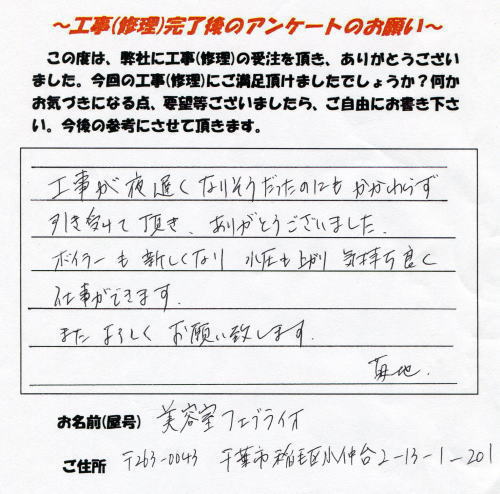 ～工事(修理)完了後のアンケートのお願い～
この度は、弊社に工事(修理)の受注を頂き、ありがとうござい
ました。今回の工事(修理)にご満足頂けましたでしょうか？何か
お気づきになる点、要望等ございましたら、ご自由にお書き下さ
い。今後の参考にさせて頂きます。
工事が夜遅くなりそうだったのにもかかわらず
引き受けて頂き、ありがとうございました。
ボイラーも新しくなり 水圧も上がり 気持ち良く
仕事ができます。
またよろしくお願い致します。
お名前(屋号) 美容室フェブライオ
ご住所 〒263-0043 千葉市稲毛区小仲台2-13-1-201